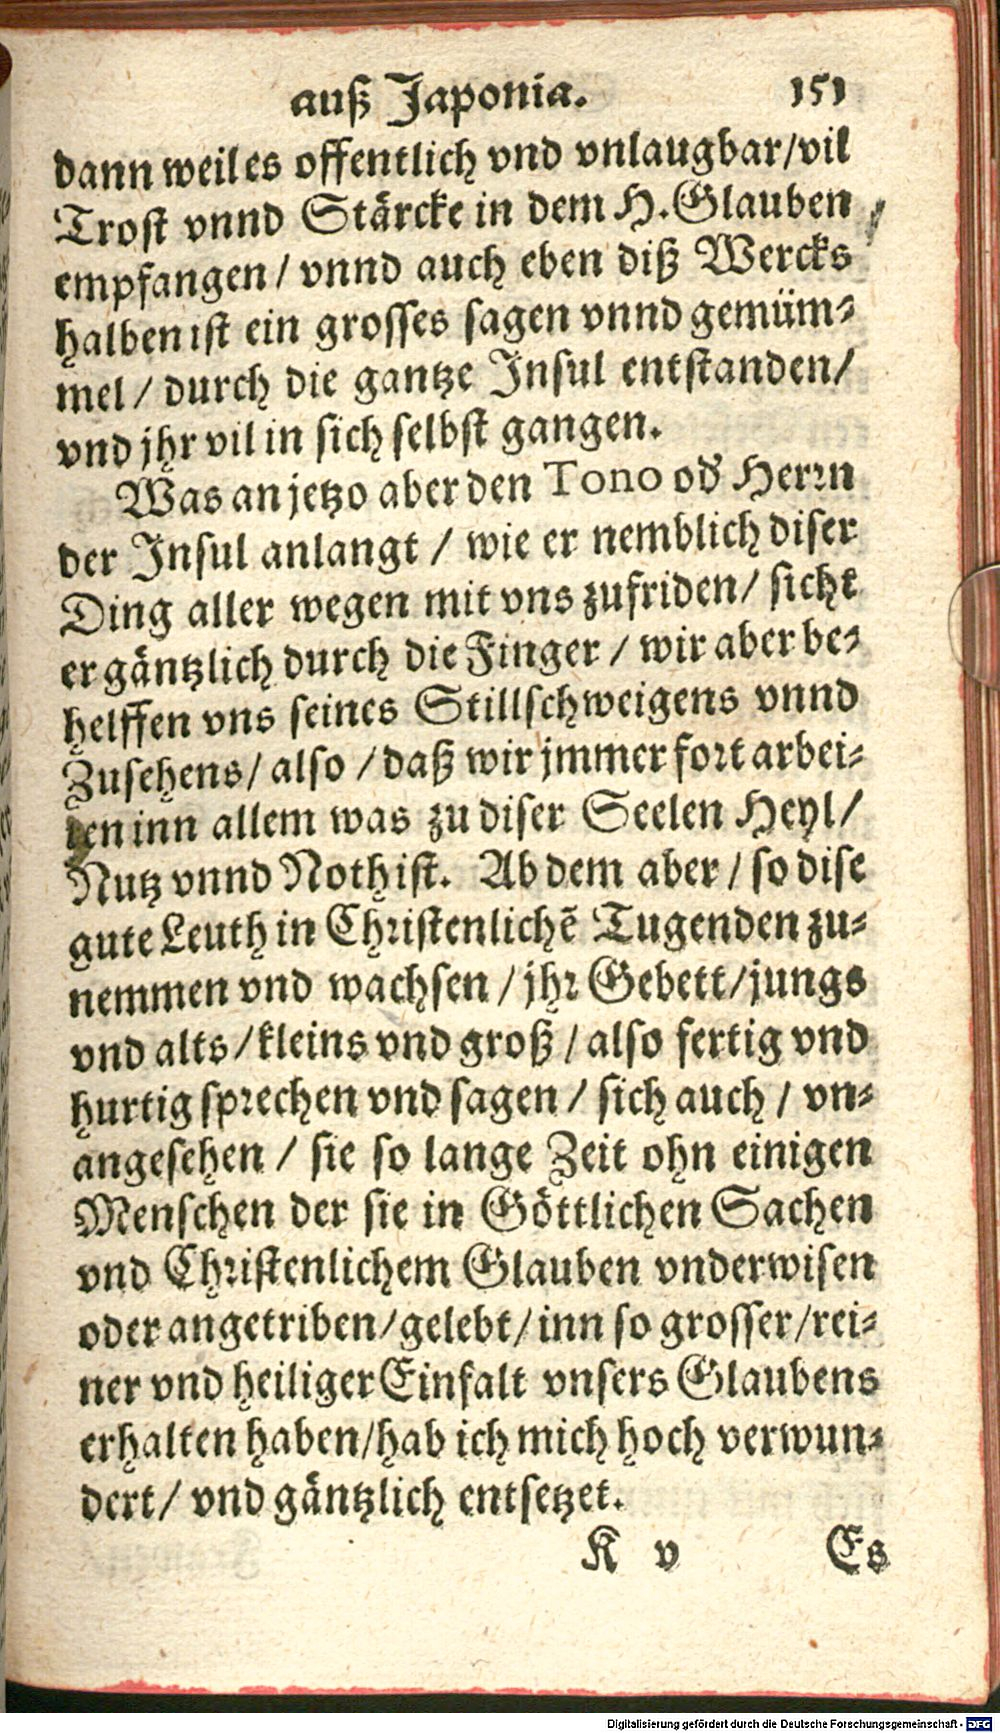 auß Japonia. 151
dann weil es offentlich vnd vnlaugbar/vil
Trost vnnd Stärcke in dem H. Glauben
empfangen / vnnd auch eben diß Wercks
halben ist ein grosses sagen vnnd gemüm-
mel / durch die gantze Insul entstanden/
vnd jhr vil in sich selbst gangen.
Was an jetzo aber den Tono od' Herrn
der Insul anlangt / wie er nemblich diser
Ding aller wegen mit vns zufriden/ sicht
er gäntzlich durch die Finger / wir aber be-
helffen vns seines Stillschweigens vnnd
Zusehens/ also / daß wir jmmer fort arbei-
ten inn allem was zu diser Seelen Heyl/
Nutz vnnd Noth ist. Ab dem aber / so dise
gute Leuth in Christenlichē Tugenden zu-
nemmen vnd wachsen / jhr Gebett/jungs
vnd alts/kleins vnd groß / also fertig vnd
hurtig sprechen vnd sagen / sich auch / vn-
angesehen / sie so lange Zeit ohn einigen
Menschen der sie in Göttlichen Sachen
vnd Christenlichem Glauben vnderwisen
oder angetriben/gelebt/inn so grosser/rei-
ner vnd heiliger Einfalt vnsers Glaubens
erhalten haben/hab ich mich hoch verwun-
dert/ vnd gäntzlich entsetzet.
K v Es
Digitalisierung gefördert durch die Deutsche Forschungsgemeinschaft - DFG